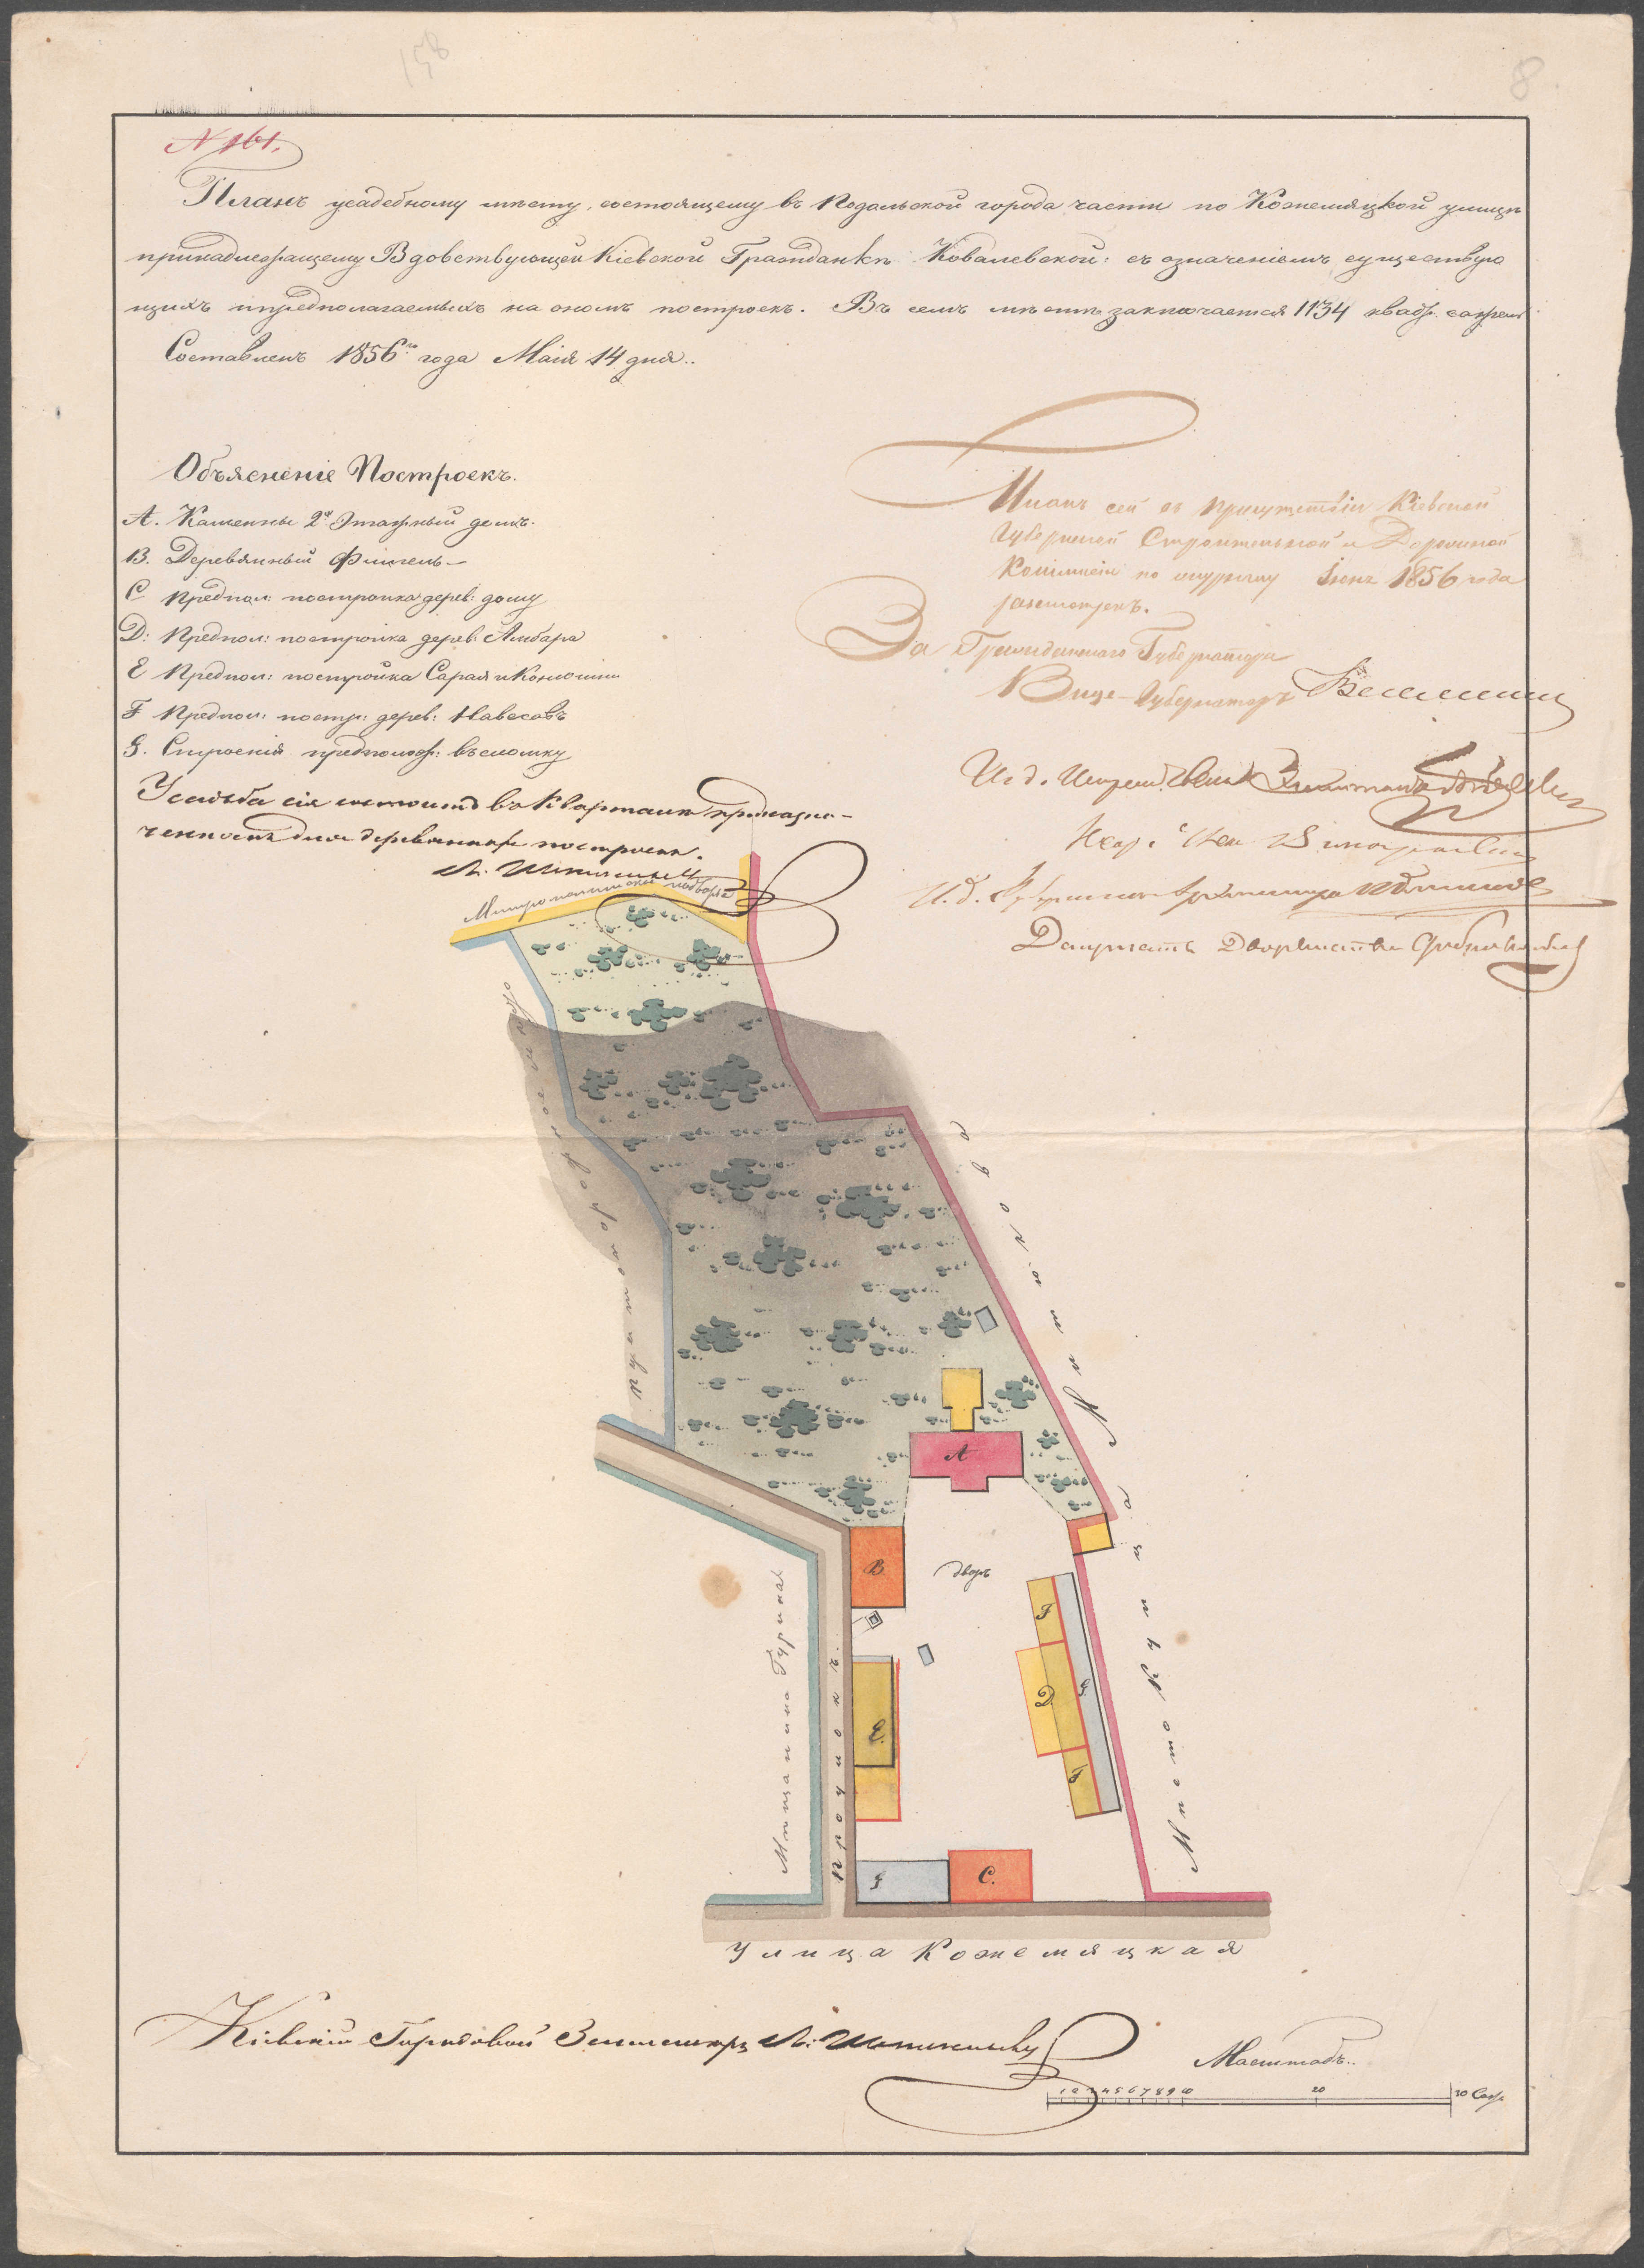 158
8
N 161.
Планъ усадебному мѣсту, состоящему въ Подольской города части по Кожемяцкой улицѣ
принадлежащему Вдовствующей Кіевской Гражданкѣ Ковалевской: съ означеніемъ существую
щихъ и предполагаемыхъ на ономъ построекъ. Въ семъ мѣстѣ заключается 1134 квадр. сажени
Составленъ 1856го года Маія 14 дня..
Объясненіе Построекъ.
A. Каменны 2х Этажный домъ.
B. Деревянный Флигель
C Предпол: постройка дерев: дому
D: Предпол: постройка дерев: Амбара
E Предпол: постройка Сарая и Конюшни
F Предпол: постр: дерев: Навесовъ
G. Строенія предполож: въ сломку
Усадьба сія состоитъ въ Кварталѣ предназна-
ченномъ для деревянныхъ построекъ.
Планъ сей въ присутствіи Кіевской
Губернской Строительной и Дорожной
Комиссіи по журналу Іюня 1856 года
разсмотренъ.
За Гражданскаго Губернатора
Вице-Губернаторъ
И. д. Губернскаго Архитектора
Депутатъ Дворянства
Митрополитское подворье
пустопорожное мѣсто
Мѣсто купца Митюкова
A
B
дворъ
F
D
G
F
E.
G
C.
Мѣщанина Гурина
Проулокъ.
Улица Кожемяцкая
Кіевскій Городовой Землемѣръ Л:
Масштабъ..
1 2 3 4 5 6 7 8 9 10 20 30 Саж